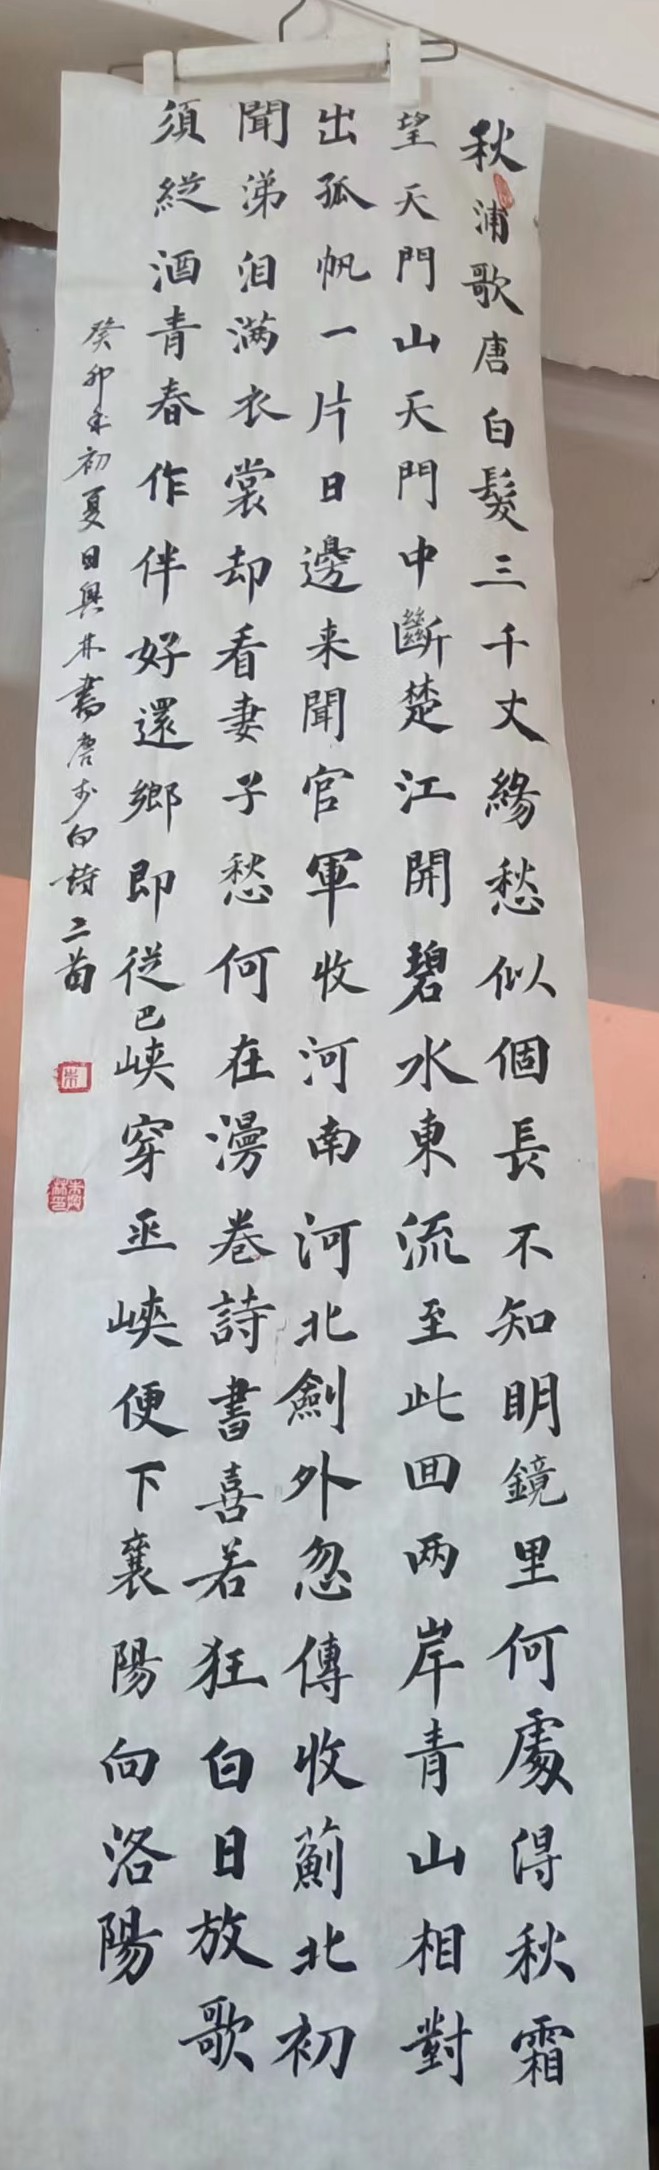 秋浦歌唐白髮三千丈緣愁似個長不知明鏡里何處得秋霜
望天門山天門中斷楚江開碧水東流至此回两岸青山相對
出孤帆一片日邊来聞官軍收河南河北劍外忽傳收薊北初
聞涕泪满衣裳却看妻子愁何在漫卷詩書喜若狂白日放歌
須縱酒青春作伴好還鄉即從巴峽穿巫峽便下襄陽向洛陽
癸卯年初夏日興林書唐李白詩二首